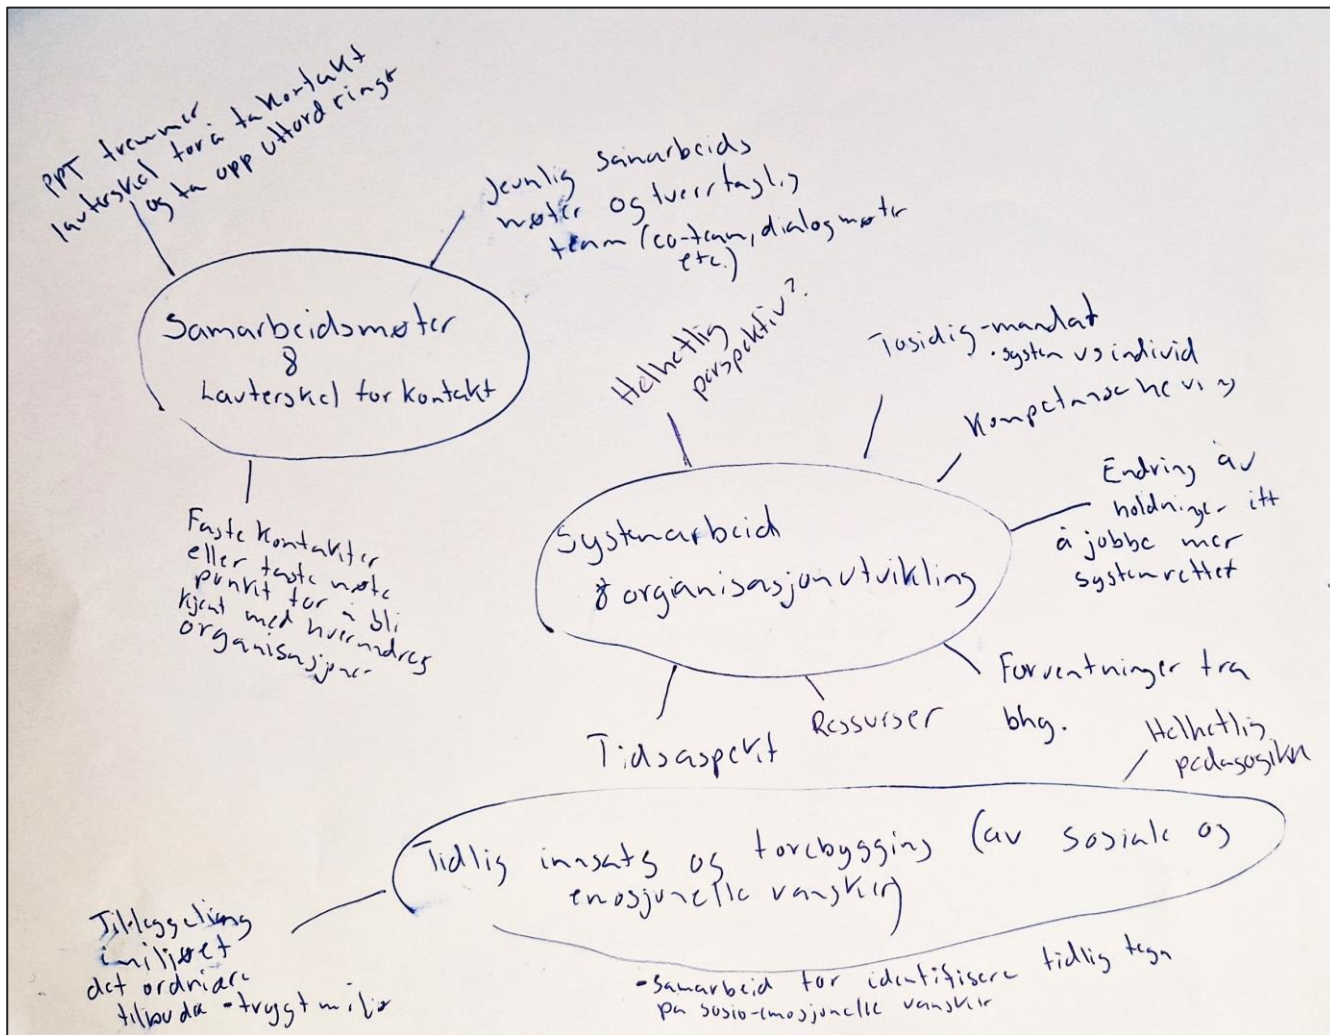 PPT fremmer
lavterskel for å ta kontakt
og ta opp utfordringer
Jevnlig samarbeids
møter og tverrfaglig
team (co-team, dialogmøter
etc.)
Samarbeidsmøter
&
Lavterskel for kontakt
Faste kontakter
eller faste møte
punkt for å bli
kjent med hverandres
organisasjoner
Helhetlig
perspektiv?
Tosidig-mandat
·system vs individ
Kompetanseheving
Endring av
holdninger ift
å jobbe mer
systemrettet
Systemarbeid
& organisasjonutvikling
Forventninger fra
bhg.
Ressurser
Tidsaspekt
Helhetlig
pedagogikk
Tidlig innsats og forebygging (av sosiale og
emosjonelle vansker)
Tilrettelegging
i miljøet
det ordinære
tilbudet -trygt miljø
-samarbeid for identifisere tidlig tegn
på sosio-emosjonelle vansker